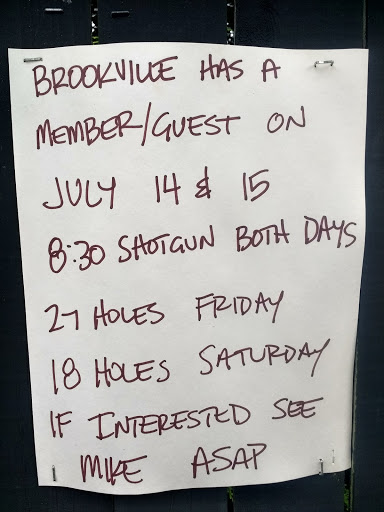 BROOKVILLE HAS A
MEMBER/GUEST ON
JULY 14 & 15
8:30 SHOTGUN BOTH DAYS
27 HOLES FRIDAY
18 HOLES SATURDAY
IF INTERESTED SEE
MIKE ASAP